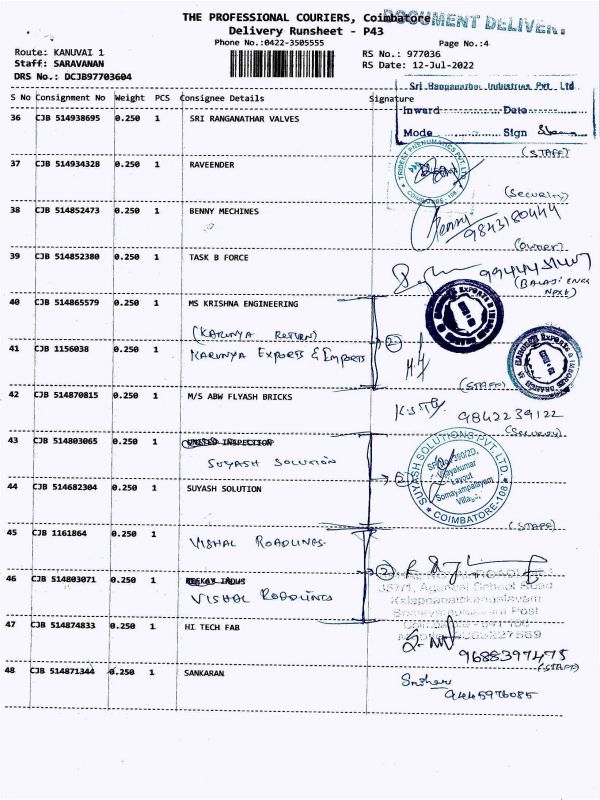 THE PROFESSIONAL COURIERS, Coimbatore
DOCUMENT DELIVERY
Delivery Runsheet - P43
Phone No.:0422-3505555
Page No.:4
Route: KANUVAI 1
RS No.: 977036
Staff: SARAVANAN
RS Date: 12-Jul-2022
DRS No.: DCJB97703604
Sri Ranganathar Industries Pvt. Ltd
S No Consignment No Weight PCS Consignee Details Signature
Inward Date
Mode Sign
36 CJB 514938695 0.250 1 SRI RANGANATHAR VALVES
(STAFF)
TRIDENT PNEUMATICS PVT. LTD. COIMBATORE - 108
37 CJB 514934328 0.250 1 RAVEENDER
(Security)
38 CJB 514852473 0.250 1 BENNY MECHINES
Benny 9843180444
(Owner)
39 CJB 514852380 0.250 1 TASK B FORCE
(BALAJI ENGG
NEXT)
40 CJB 514865579 0.250 1 MS KRISHNA ENGINEERING
(KARUNYA RETURN)
2
41 CJB 1156038 1 KARUNYA EXPORTS & IMPORTS
(STAFF)
42 CJB 514870815 0.250 1 M/S ABW FLYASH BRICKS
9842239122
(Security)
43 CJB 514803065 0.250 1 UNITED INSPECTION
SUYASH SOLUTION
SUYASH SOLUTIONS PVT. LTD. COIMBATORE-108
SF No. 390/2D,
Vijayakumar
Layout
Somayampalayam
Village
2
44 CJB 514682304 0.250 1 SUYASH SOLUTION
(STAFF)
45 CJB 1161864 0.250 1 VISHAL ROADLINES
46 CJB 514803071 0.250 1
VISHAL ROADLINES
2
School Road
Post
47 CJB 514874833 0.250 1 HI TECH FAB
9688397475
(STAFF)
48 CJB 514871344 0.250 1 SANKARAN
9445976085